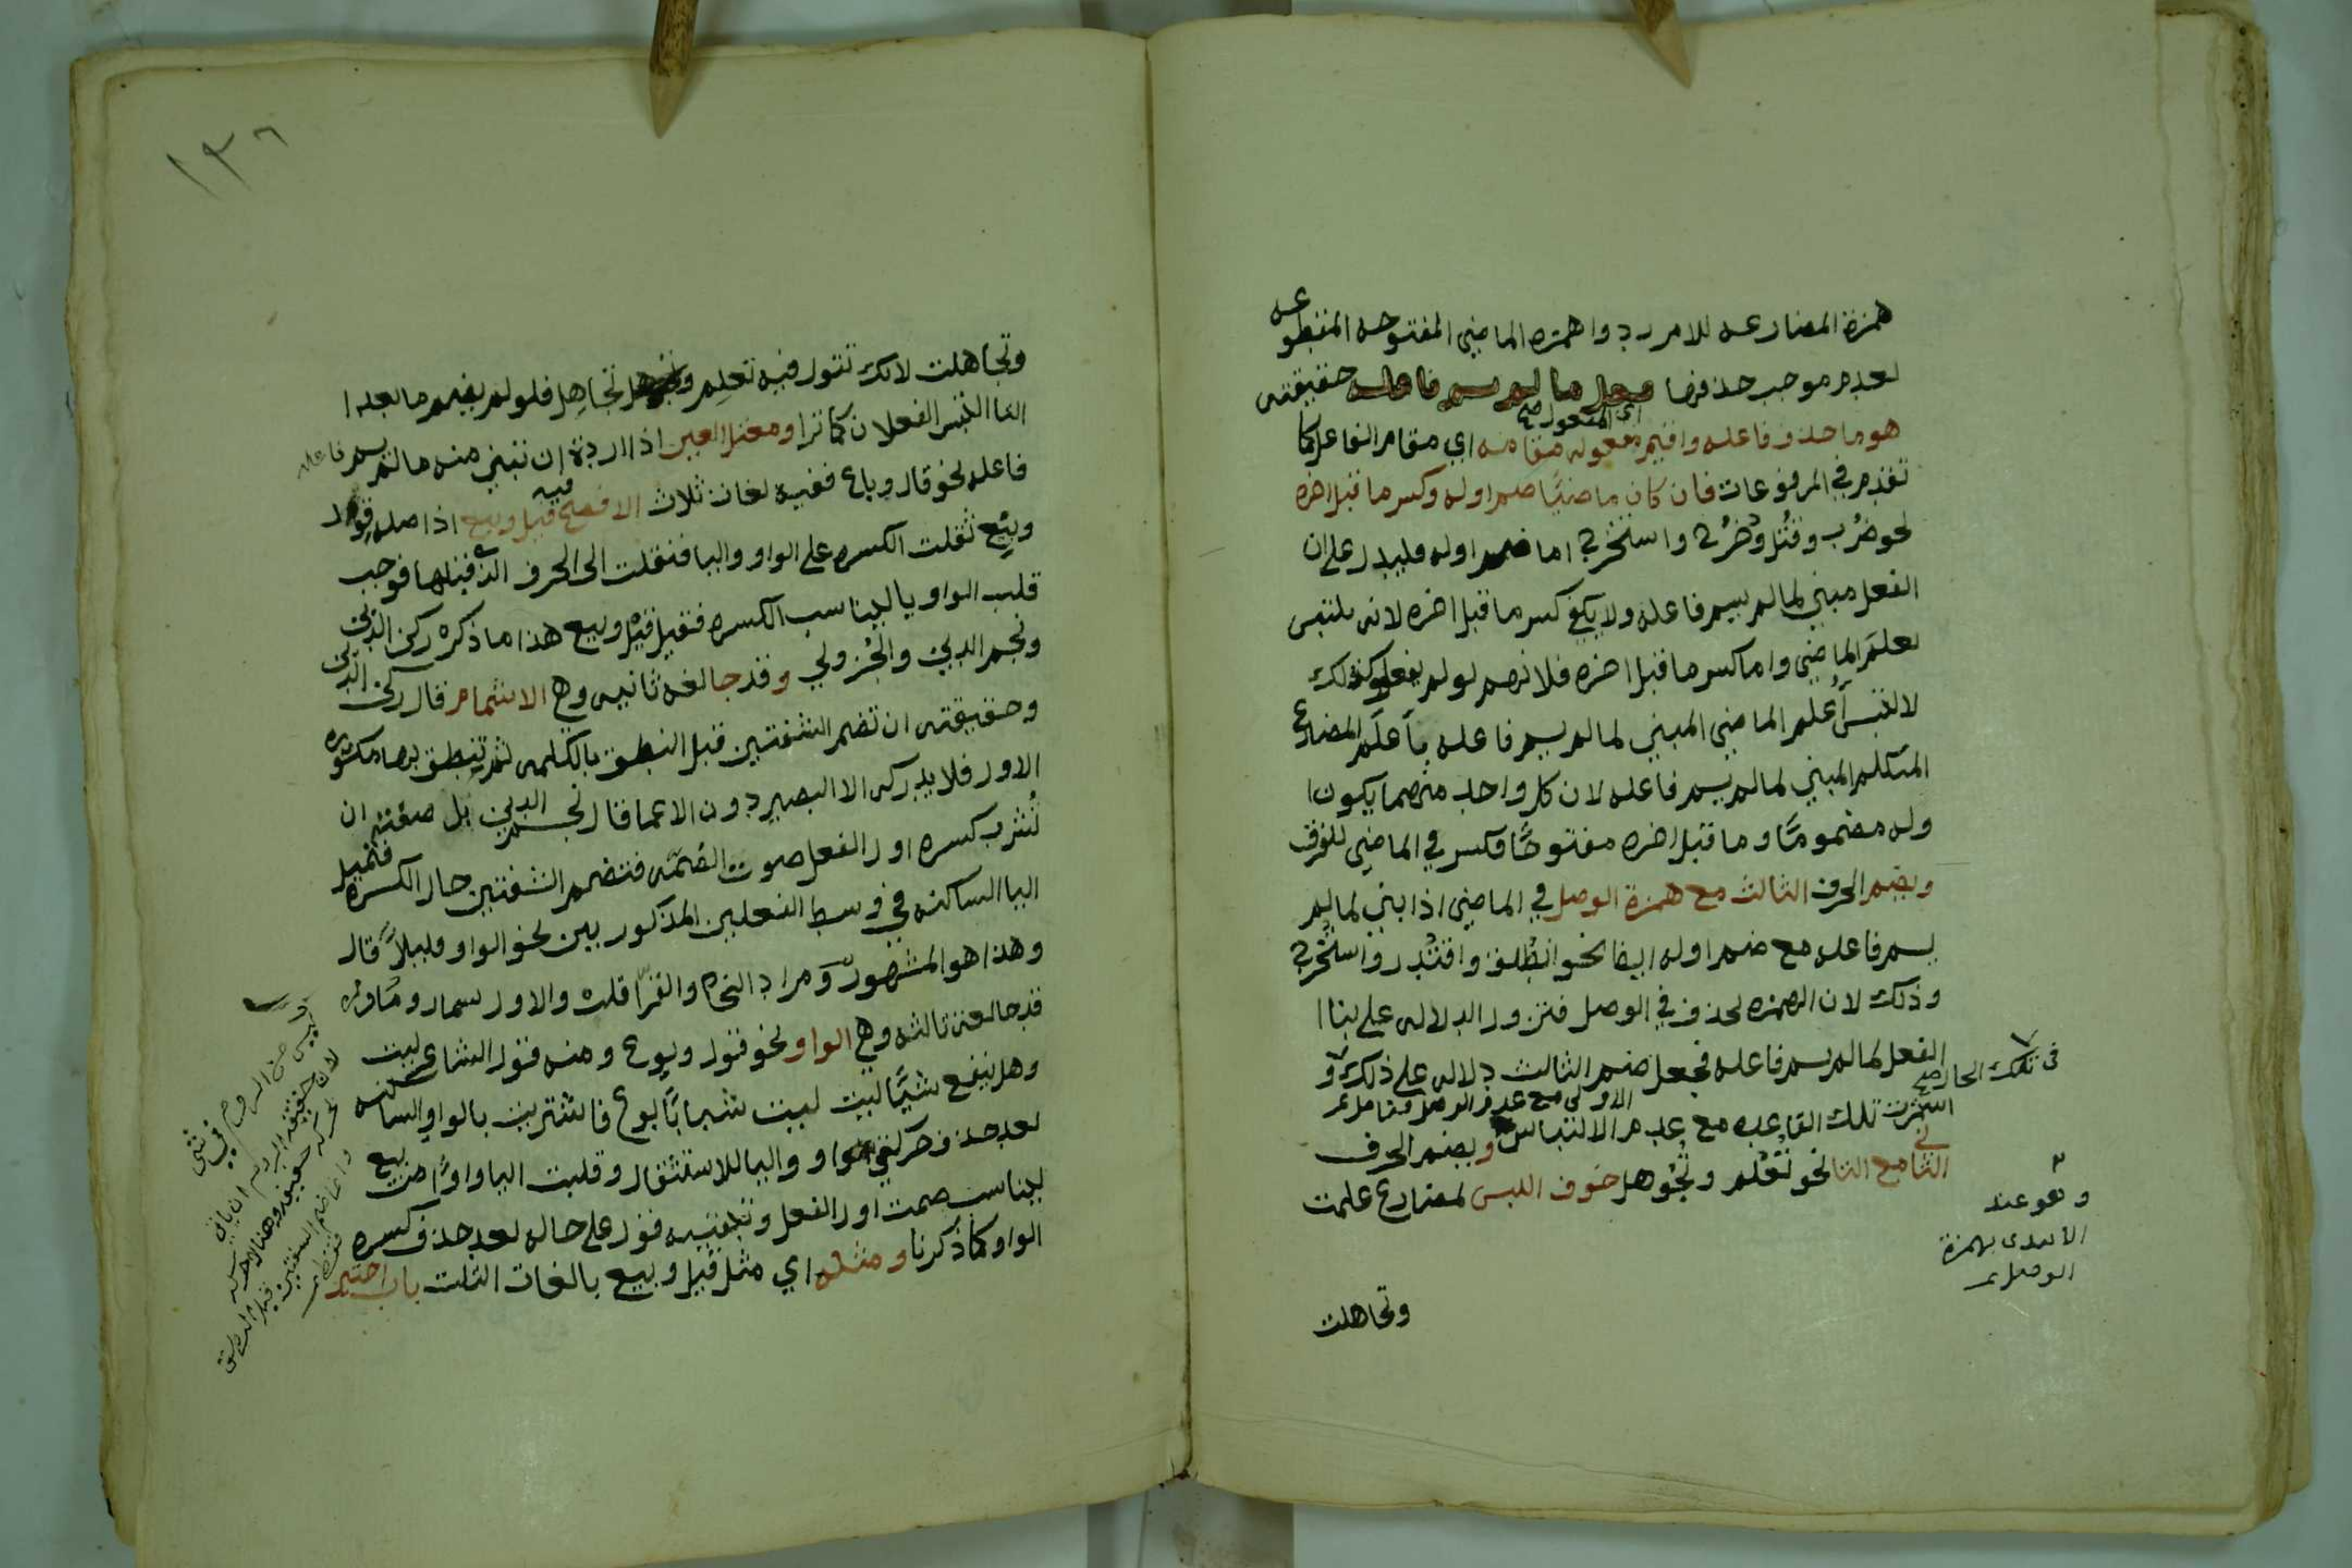 همزة المضارعه للامر ردوا همزه الماضي المفتوحه المقطوعه
لعدم موجب حذفها فعل ما لم يسم فاعله حقيقته
هو ما حذف فاعله واقيم مفعوله مقامه اي مقام الفاعل كما
اي المفعول صح
تقدم في المرفوعات فان كان ماضيًا ضم اوله وكسر ما قبل اخره
نحو ضُرب وقُتل ودُحرج واستخرج اما ضم اوله فليدل على ان
الفعل مبني لما لم يسم فاعله ولا يكفي كسر ما قبل اخره لانه يلتبس
بعلم الماضي واما كسر ما قبل اخره فلانهم لو لم يفعلوا كذلك
لالتبس أُعلم الماضي المبني لما لم يسم فاعله بأُعلَم المضارع
المتكلم المبني لما لم يسم فاعله لان كل واحد منهما يكون ا
وله مضمومًا وما قبل اخره مفتوحًا فكسر في الماضي للفرق
ويضم الحرف الثالث مع همزة الوصل في الماضي اذا بني لما لم
يسم فاعله مع ضم اوله ايضا نحو انطُلق واقتُدر واستُخرج
وذلك لان الهمزه تحذف في الوصل فتزول الدلاله على بنا ا
الفعل لما لم يسم فاعله فجعل ضم الثالث دلاله على ذلك و
في تلك الحال صح
استمرت تلك القاعده مع عدم الالتباس ويضم الحرف
الثاني مع التا نحو تُعُلم وتُجُوهل خوف اللبس لمضارع علمت
وهو عند
الابتدى بهمزة
الوصل
وتجاهلت
١٣٦
وتجاهلت لانك تقول فيه تعلم وتجاهل فلو لم يضم ما بعد ا
التا التبس الفعلان كما ترا ومعتل العين اذا اردة ان تبني منه ما لم يسم فاعله
فاعله نحو قال وباع ففيه لغات ثلاث الافصح فيه قيل وبيع اذ اصله قول
وبيع ثقلت الكسره على الواو واليا فنقلت الى الحرف الذي قبلها فوجب
قلب الواو يا ليناسب الكسره فقيل قيل وبيع هذا ما ذكره ركن الدين
ونجم الدين والجزولي وقد جا لغه ثانيه وهي الاشمام قال ركن الدين
وحقيقته ان تضم الشفتين قبل النطق بالكلمه ثم تنطق بها مكسوره
الاول فلا يدركه الا البصير دون الاعما قال نجم الدين بل صفته ان
تُشرب كسره اول الفعل صوت الضمه فتضم الشفتين حال الكسره فتميل
اليا الساكنه في وسط الفعلين المذكورين نحو الواو قليلاً قال
وهذا هو المشهور ومراد النحاه والقرا قلت والاول سماد ومادره
قد جا لغه ثالثه وهي الواو نحو قول وبوع ومنه قول الشاعر ليت
وهل ينفع شيًّا ليت ليت شبابًا بوع فاشتريت بالواو الساكنه
بعد حذف حركتي الواو واليا للاستثقال وقلبت اليا واوًا من بيع
ليناسب ضمت اول الفعل وتبقيه قول على حاله بعد حذف كسره
الواو كما ذكرنا ومثله اي مثل قيل وبيع بالغات الثلث باب اختير
ليس من الروم في شي
لان حقيقة الروم ان ياتي